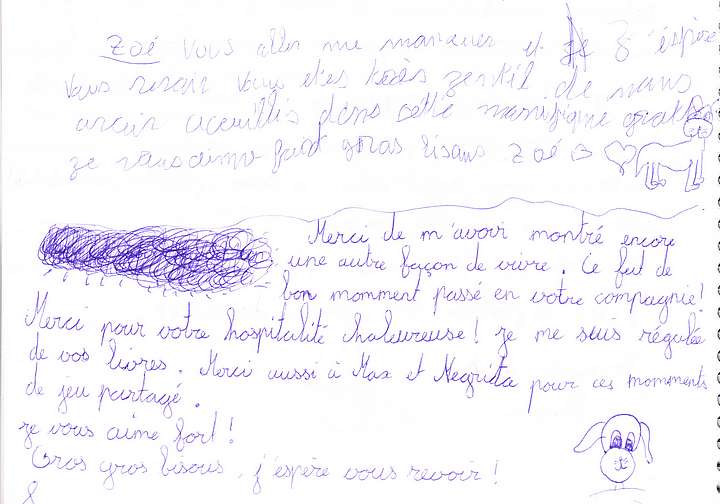 Zoé vous aller me manquer et j'éspère
vous revoir vous etes très gentil de nous
avoir aceuillis dans cette manifique
je vous aime fort gros bisous Zoé
Merci de m'avoir montré encore
une autre façon de vivre. Ce fut de
bon momment passé en votre compagnie!
Merci pour votre hospitalité chaleureuse! je me suis régalée
de vos livres. Merci aussi à Max et Negrita pour ces momments
de jeu partagé.
je vous aime fort!
Gros gros bisous, j'espère vous revoir!